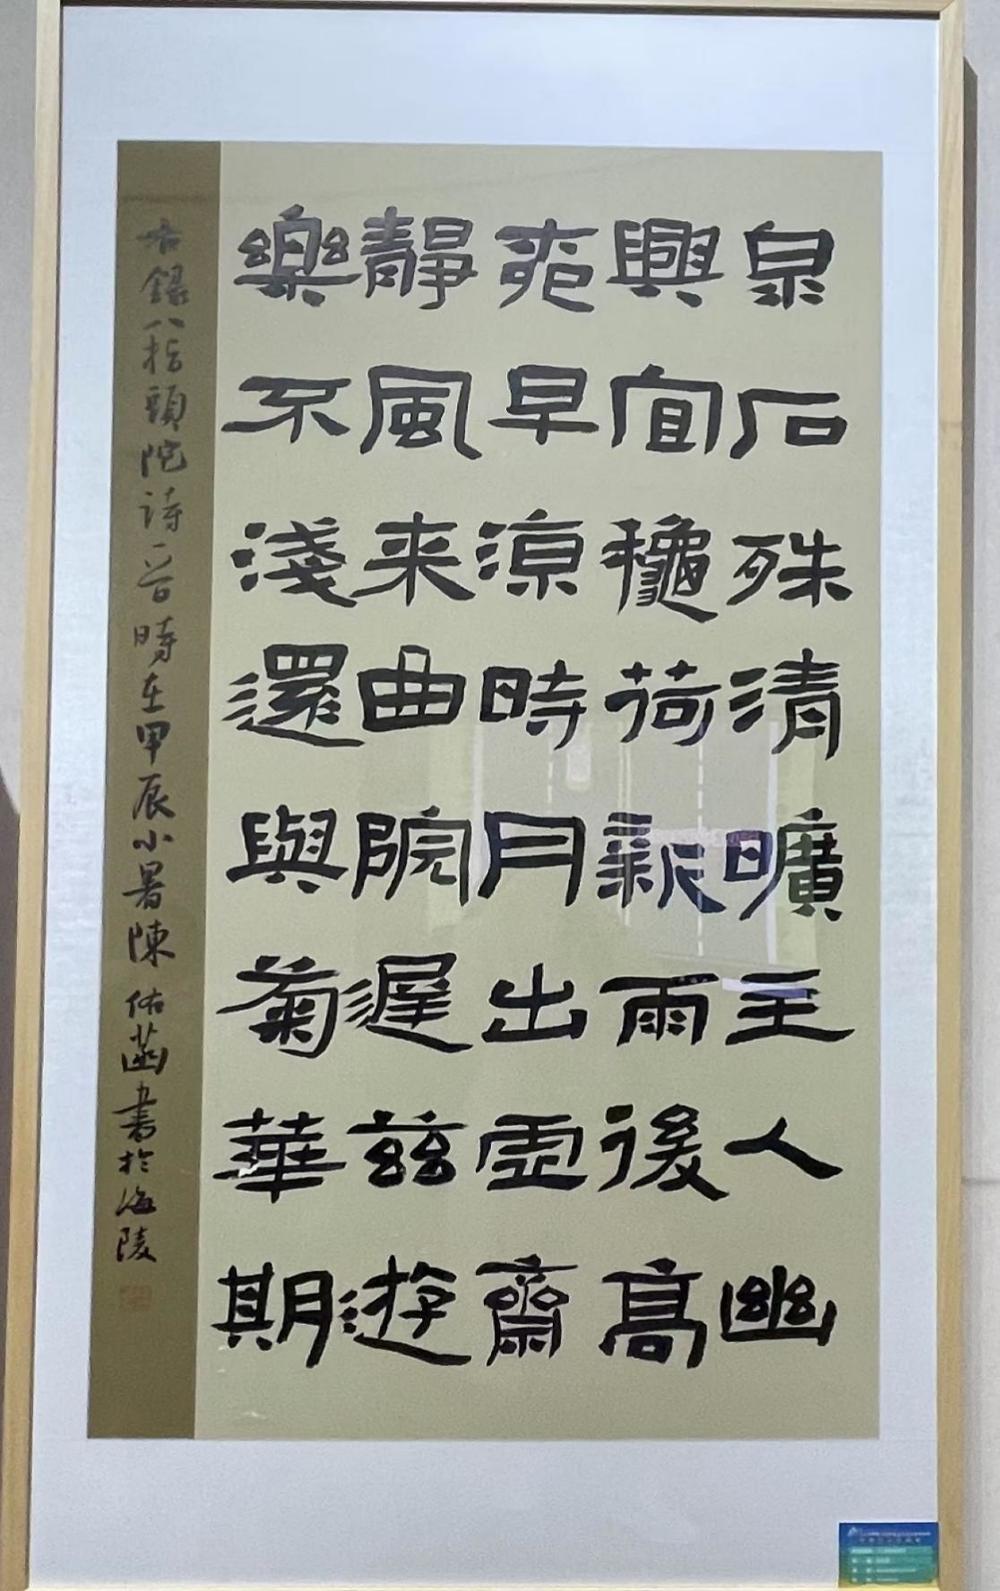 泉石殊清曠主人幽
興宜穐荷新雨後高
早涼時月出虛齋
靜風来曲院遲茲遊
樂不淺還與菊華期
右録八指頭陀詩一首時在甲辰小暑陳佑菡書於海陵